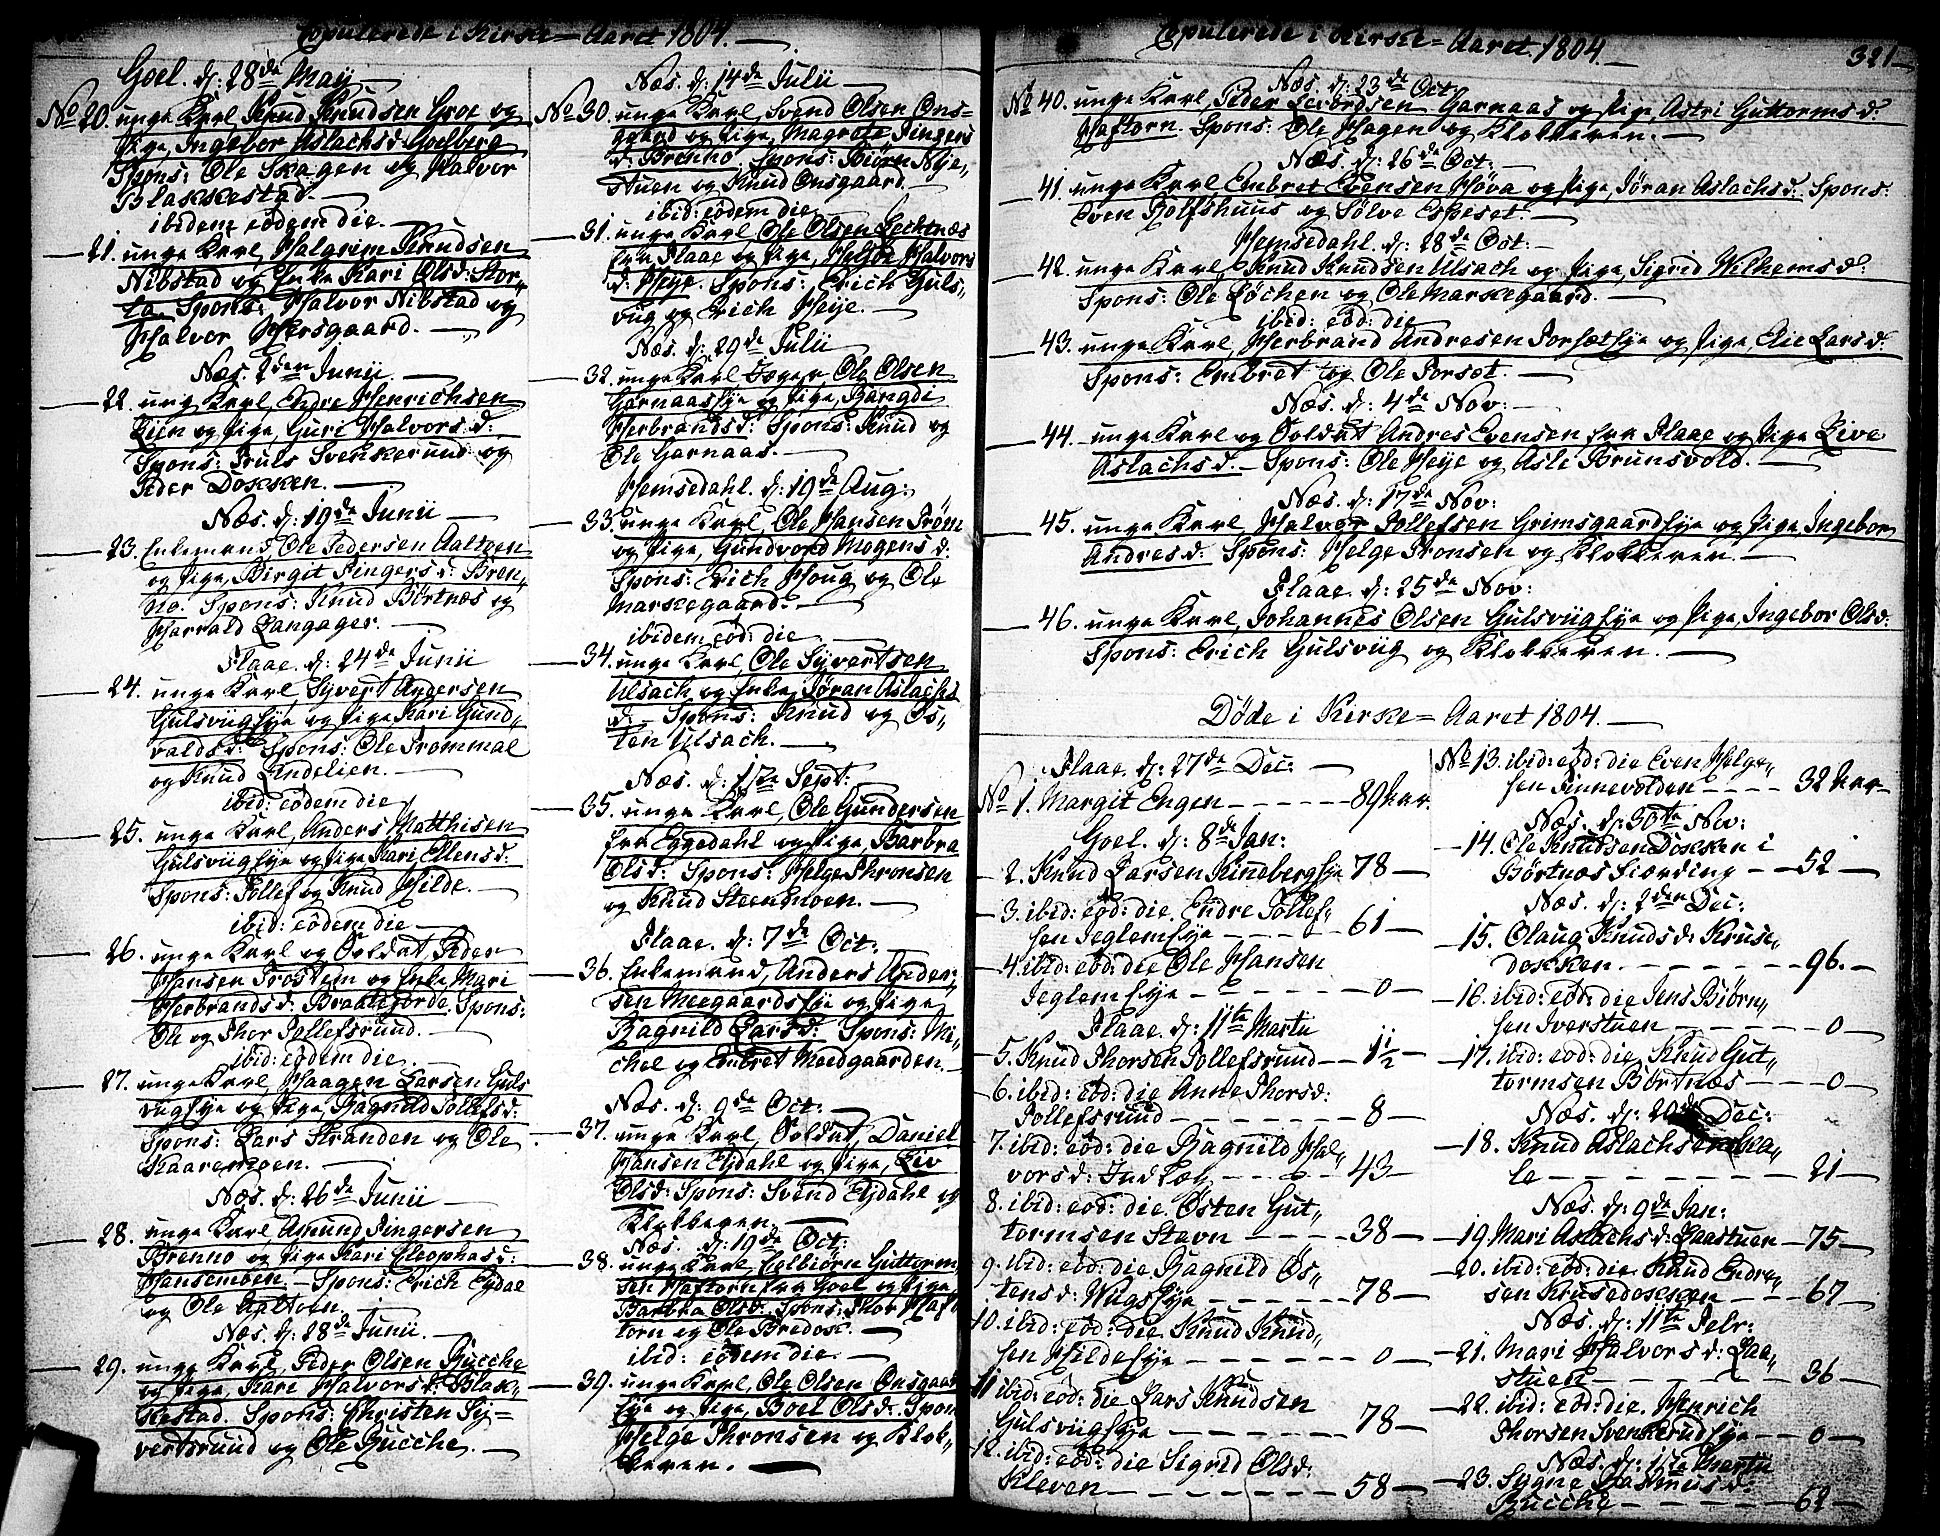 Copulerede i Kirke=Aaret 1804.
Goel. d: 28de Maji
No 20. unge Karl Knud Knudsen Groe og
Pige, Ingebor Aslachsd: Goelberg
Spons: Ole Skagen og Halvor
Blakkestad.
ibidem eodem die.
21. unge Karl, Halgrim Knudsen
Nibstad og Enke Kari Olsd: Stor„
la. Spons: Halvor Nibstad og
Halvor Hersgaard.
Næs. 2den Junii.
22. ung Karl, Endre Henrichsen
Lien og Pige, Guri Halvorsd:
Spons: Truls Svenkerud og
Peder Dokken.
Næs. d: 19de Junii
23. Enkemand, Ole Pedersen Aaltoen
og Pige, Birgit Fingersd: Bren„
no. Spons: Knud Børtnæs og
Harrald Langager.
Flaae. d: 24de Junii
24. unge Karl, Syvert Andersen
Gulsviigeje og Pige Kari Gund„
valdsd: Spons: Ole Trommal
og Knud Endelien.
ibid: eodem die
25. unge Karl, Anders Matthisen
Gulsviigeje og Pige Kari Ellensd:
Spons: Tollef og Knud Hilde.
ibid: eodem die
26. unge Karl og Soldat, Peder
Hansen Trostem og Enke, Mari
Herbrandsd: Braateforde. Spons:
Ole og Thor Tollefsrund.
ibid: eodem die.
27. unge Karl, Haagen Larsen Guls
viigeje og Pige, Ragnild Tollefsd:
Spons: Lars Stranden og Ole
Kaaremoen.
Næs. d: 26de Junii
28. unge Karl Amund Fingersen
Brenno og Pige Kari Cleophasd:
Hansemben. Spons: Erich Ejdal
og Ole Aaltoen.
Næs. d: 28de Junii.
29. unge Karl, Peder Olsen Bucche
og Pige, Kari Halvorsd: Blak„
kestad. Spons: Christen Sy=
vertsruud og Ole Bucche.
Næs. d: 14de Julii
No 30. unge Karl, Svend Olsen Ons„
gaard og Pige, Magrete Fingers
d: Brenno. Spons: Biørn Nye„
stuen og Knud Onsgaard.
ibid: eodem die
31. unge Karl, Ole Olsen Lechtnæs
fra Flaae og Pige, Helge Halvors
d: Heje. Spons: Erich Guls„
viig og Erich Heije.
Næs. d: 29de Julii
32. unge Karl Jæger, Ole Olsen
Garnaaseje og Pige, Rangdi
Herbrandsd: Spons: Knud og
Ole Garnaas.
Hemsedahl. d: 19de Aug:
33. unge Karl, Ole Hansen Trøim
og Pige, Gundvord Mogensd:
Spons: Erich Houg og Ole
Markegaard.
ibidem eod: die
34. unge Karl, Ole Syvertsen
Ulsach og Enke, Jøran Aslachs
d: Spons: Knud og Øs„
ten Ulsach.
Næs. d: 17de Sept:
35. unge Karl, Ole Gundersen
fra Eggedahl og Pige, Barbra
Olsd: Spons: Helge Thronsen
og Knud Steensmoen.
Flaae. d: 7de Oct:
36. Enkemand, Anders Ander„
sen Meegaardseje og Pige
Ragnild Larsd: Spons: Mi„
chel og Embret Meedgaarden.
Næs. d: 9de Oct:
37. unge Karl, Soldat, Daniel
Hansen Ejdahl og Pige, Liv
Olsd: Spons: Svend Ejdahl og
Klokkeren.
Næs. d: 19de Oct:
38. unge Karl, Eelbiørn Guttorm
sen Haftorn fra Goel og Pige
Barbra Olsd: Spons: Thor Haf
torn og Ole Bredose.
ibid: eodem die.
39. unge Karl, Ole Olsen Onsgaar
eje og Pige, Boel Olsd: Spon
Helge Thronsen og Klok„
keren.
Copulerede i Kirke=Aaret 1804.
321
Næs. d: 23de Oct:
No 40. unge Karl, Peder Leverdsen Garnaas og Pige, Astri Guttormsd:
Haftorn. Spons: Ole Hagen og Klokkeren.
Næs. d: 26de Oct:
41. unge Karl Embret Evensen Høva og Pige, Jøran Aslachsd: Spons:
Even Rolfshuus og Sølve Espeset.
Hemsedahl. d: 28de Oct:
42. unge Karl, Knud Knudsen Ulsach og Pige, Sigrid Wilhemsd:
Spons: Ole Løchen og Ole Markegaard.
ibid: eod: die
43. unge Karl, Herbrand Andresen Torsæteje og Pige, Elie Larsd:
Spons: Embret og Ole Torset.
Næs. d: 4de Nov:
44. unge Karl og Soldat Andres Evensen fra Flaae og Pige Live
Aslachsd: Spons: Ole Heije og Asle Brunsvold.
Næs. d: 17de Nov:
45. unge Karl, Halvor Tollefsen Grimsgaardeje og Pige, Ingebor
Andresd: Spons: Helge Tronsen og Klokkeren.
Flaae. d: 25de Nov:
46. unge Karl, Johannes Olsen Gulsviigeje og Pige, Ingebor Olsd:
Spons: Erich Gulsviig og Klokkeren.
Døde i Kirke=Aaret 1804.
Flaae. d: 27de Dec:
No 1. Margit Engen 89 Aar.
Goel. d: 8de Jan:
2. Knud Larsen Rinebergeje 78
3. ibid: eod: die. Endre Tollef„
sen Jeglemeje 61
4. ibid: eod: die Ole Hansen
Jeglemeje 0
Flaae. d: 11te Martii
5. Knud Thorsen Tollefsruud 1 1/2
6. ibid: eod: die Anne Thorsd:
Tollefsruud 8
7. ibid: eod: die Ragnild Hal„
vorsd: Indlæg 43
8. ibid: eod: die. Østen Gut„
tormsen Stavn 38
9. ibid: eod: die Ragnild Øs„
tensd: Wiigseje 78
10. ibid: eod: die. Knud Knud„
sen Hildeeje 0
11 ibid: eod: die Lars Knudsen
Gulsviigeje 78
12. ibid: eod: die Sigrid Olsd:
Kleven 58
No 13. ibid: eod: die Even Helge„
sen Finnevolden 32 Aar
Næs. d: 30te Nov:
14. Ole Knudsen Dokken i
Børtnæs Fiærding 52
Næs. d: 2den Dec:
15. Olaug Knudsd: Kruse„
dokken. 96.
16. ibid: eod: die Jens Biørn„
sen Iverstuen 0
17. ibid: eod: die, Knud Gut„
tormsen Børtnæs 0
Næs. d: 20de Dec:
18. Knud Aslachsen
le 21
Næs. d: 9de Jan:
19 Mari Aslachsd: Laastuen 75
20. ibid: eod: die. Knud Endre„
sen Krusedokken 67
Næs. d: 11te Febr:
21. Mari Halvorsd: Laa„
stuen 36
22. ibid: eod: die. Henrich
Thorsen Svenkerudeje 0
Næs. d: 17de Martii
23. Sygne Rasmusd:
Bucche 62